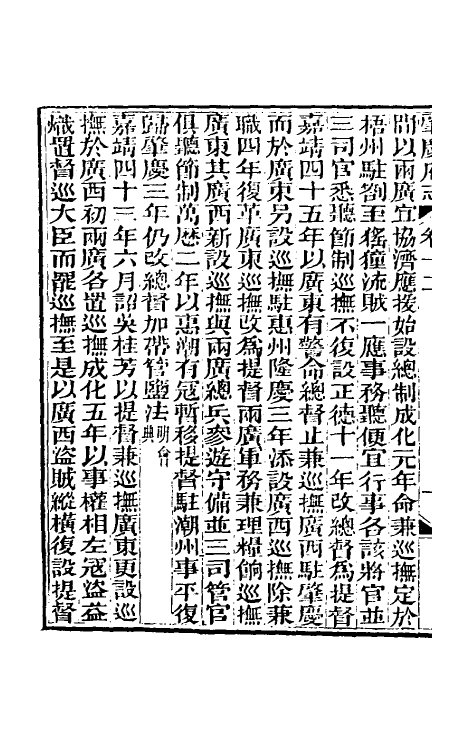 肇慶府志 卷十二
間以兩廣宜協濟應援始設總制成化元年命兼巡撫定於
梧州駐劄至猺獞流賊一應事務聽便宜行事各該將官並
三司官悉聽節制巡撫不復設正德十一年改總督爲提督
嘉靖四十五年以廣東有警命總督止兼巡撫廣西駐肇慶
而於廣東另設巡撫駐惠州隆慶三年添設廣西巡撫除兼
職四年復革廣東巡撫改爲提督兩廣軍務兼理糧餉巡撫
廣東其廣西新設巡撫與兩廣總兵參遊守備並三司管官
俱聽節制萬歷二年以惠潮有寇暫移提督駐潮州事平復
歸肇慶三年仍改總督加帶管鹽法明會典
嘉靖四十三年六月詔吳桂芳以提督兼巡撫廣東更設巡
撫於廣西初兩廣各置巡撫成化五年以事權相左寇盜益
熾置督巡大臣而罷巡撫至是以廣西盜賊縱橫復設提督